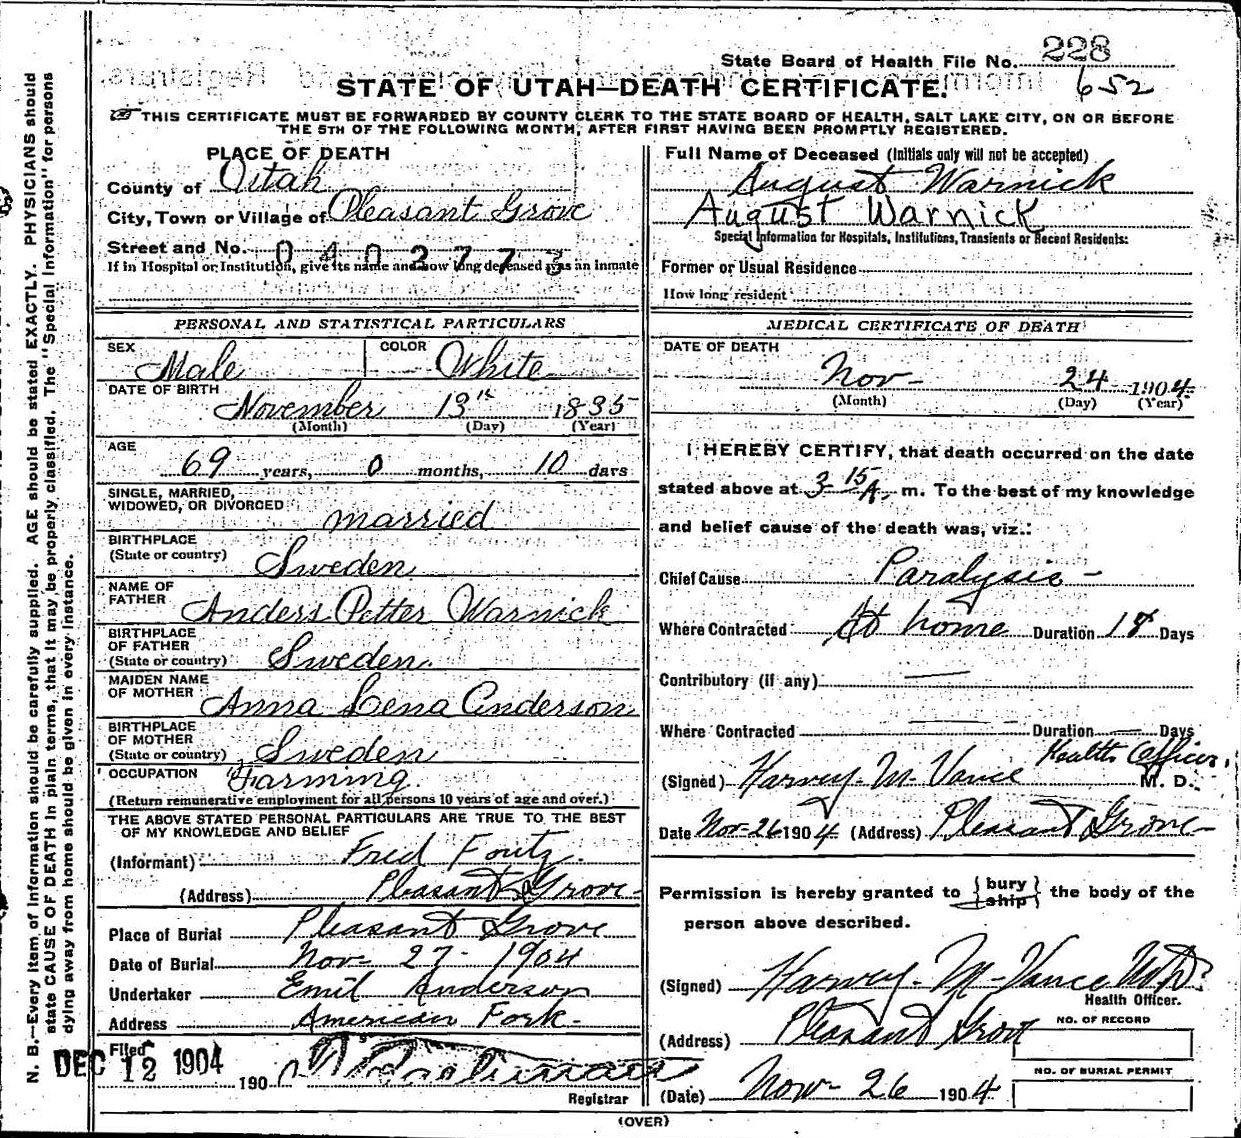 State Board of Health File No. 228
652
STATE OF UTAH—DEATH CERTIFICATE.
THIS CERTIFICATE MUST BE FORWARDED BY COUNTY CLERK TO THE STATE BOARD OF HEALTH, SALT LAKE CITY, ON OR BEFORE
THE 5TH OF THE FOLLOWING MONTH, AFTER FIRST HAVING BEEN PROMPTLY REGISTERED.
PLACE OF DEATH
County of Utah
City, Town or Village of Pleasant Grove
Street and No.
0402773
If in Hospital or Institution, give its name and how long deceased was an inmate
PERSONAL AND STATISTICAL PARTICULARS
SEX Male COLOR White
DATE OF BIRTH
November 13th 1835
(Month) (Day) (Year)
AGE
69 years, 0 months, 10 days
SINGLE, MARRIED,
WIDOWED, OR DIVORCED married
BIRTHPLACE
(State or country) Sweden
NAME OF
FATHER Anders Petter Warnick
BIRTHPLACE
OF FATHER
(State or country) Sweden.
MAIDEN NAME
OF MOTHER Anna Lena Anderson
BIRTHPLACE
OF MOTHER
(State or country) Sweden
OCCUPATION Farming.
(Return remunerative employment for all persons 10 years of age and over.)
THE ABOVE STATED PERSONAL PARTICULARS ARE TRUE TO THE BEST
OF MY KNOWLEDGE AND BELIEF
(Informant) Fred Foutz.
(Address) Pleasant Grove-
Place of Burial Pleasant Grove
Date of Burial Nov- 27- 1904
Undertaker Emil Anderson
Address American Fork-
Filed
DEC 12 1904
190
Registrar
Full Name of Deceased (Initials only will not be accepted)
August Warnick
August Warnick
Special Information for Hospitals, Institutions, Transients or Recent Residents:
Former or Usual Residence
How long resident
MEDICAL CERTIFICATE OF DEATH
DATE OF DEATH
Nov- 24 1904
(Month) (Day) (Year)
I HEREBY CERTIFY, that death occurred on the date
stated above at 3 15 A. m. To the best of my knowledge
and belief cause of the death was, viz.:
Chief Cause Paralysis -
Where Contracted At home Duration 18 Days
Contributory (if any) —
Where Contracted — Duration — Days
Health Officer.
(Signed) Harvey-M-Vance M. D.
Date Nov-26 1904 (Address) Pleasant Grove-
Permission is hereby granted to {bury ship} the body of the
person above described.
(Signed) Harvey-M-Vance
Health Officer.
(Address) Pleasant Grove
NO. OF RECORD
NO. OF BURIAL PERMIT
(Date) Nov- 26 1904
(OVER)
N. B.—Every item of information should be carefully supplied. AGE should be stated EXACTLY. PHYSICIANS should
state CAUSE OF DEATH in plain terms, that it may be properly classified. The "Special Information" for persons
dying away from home should be given in every instance.